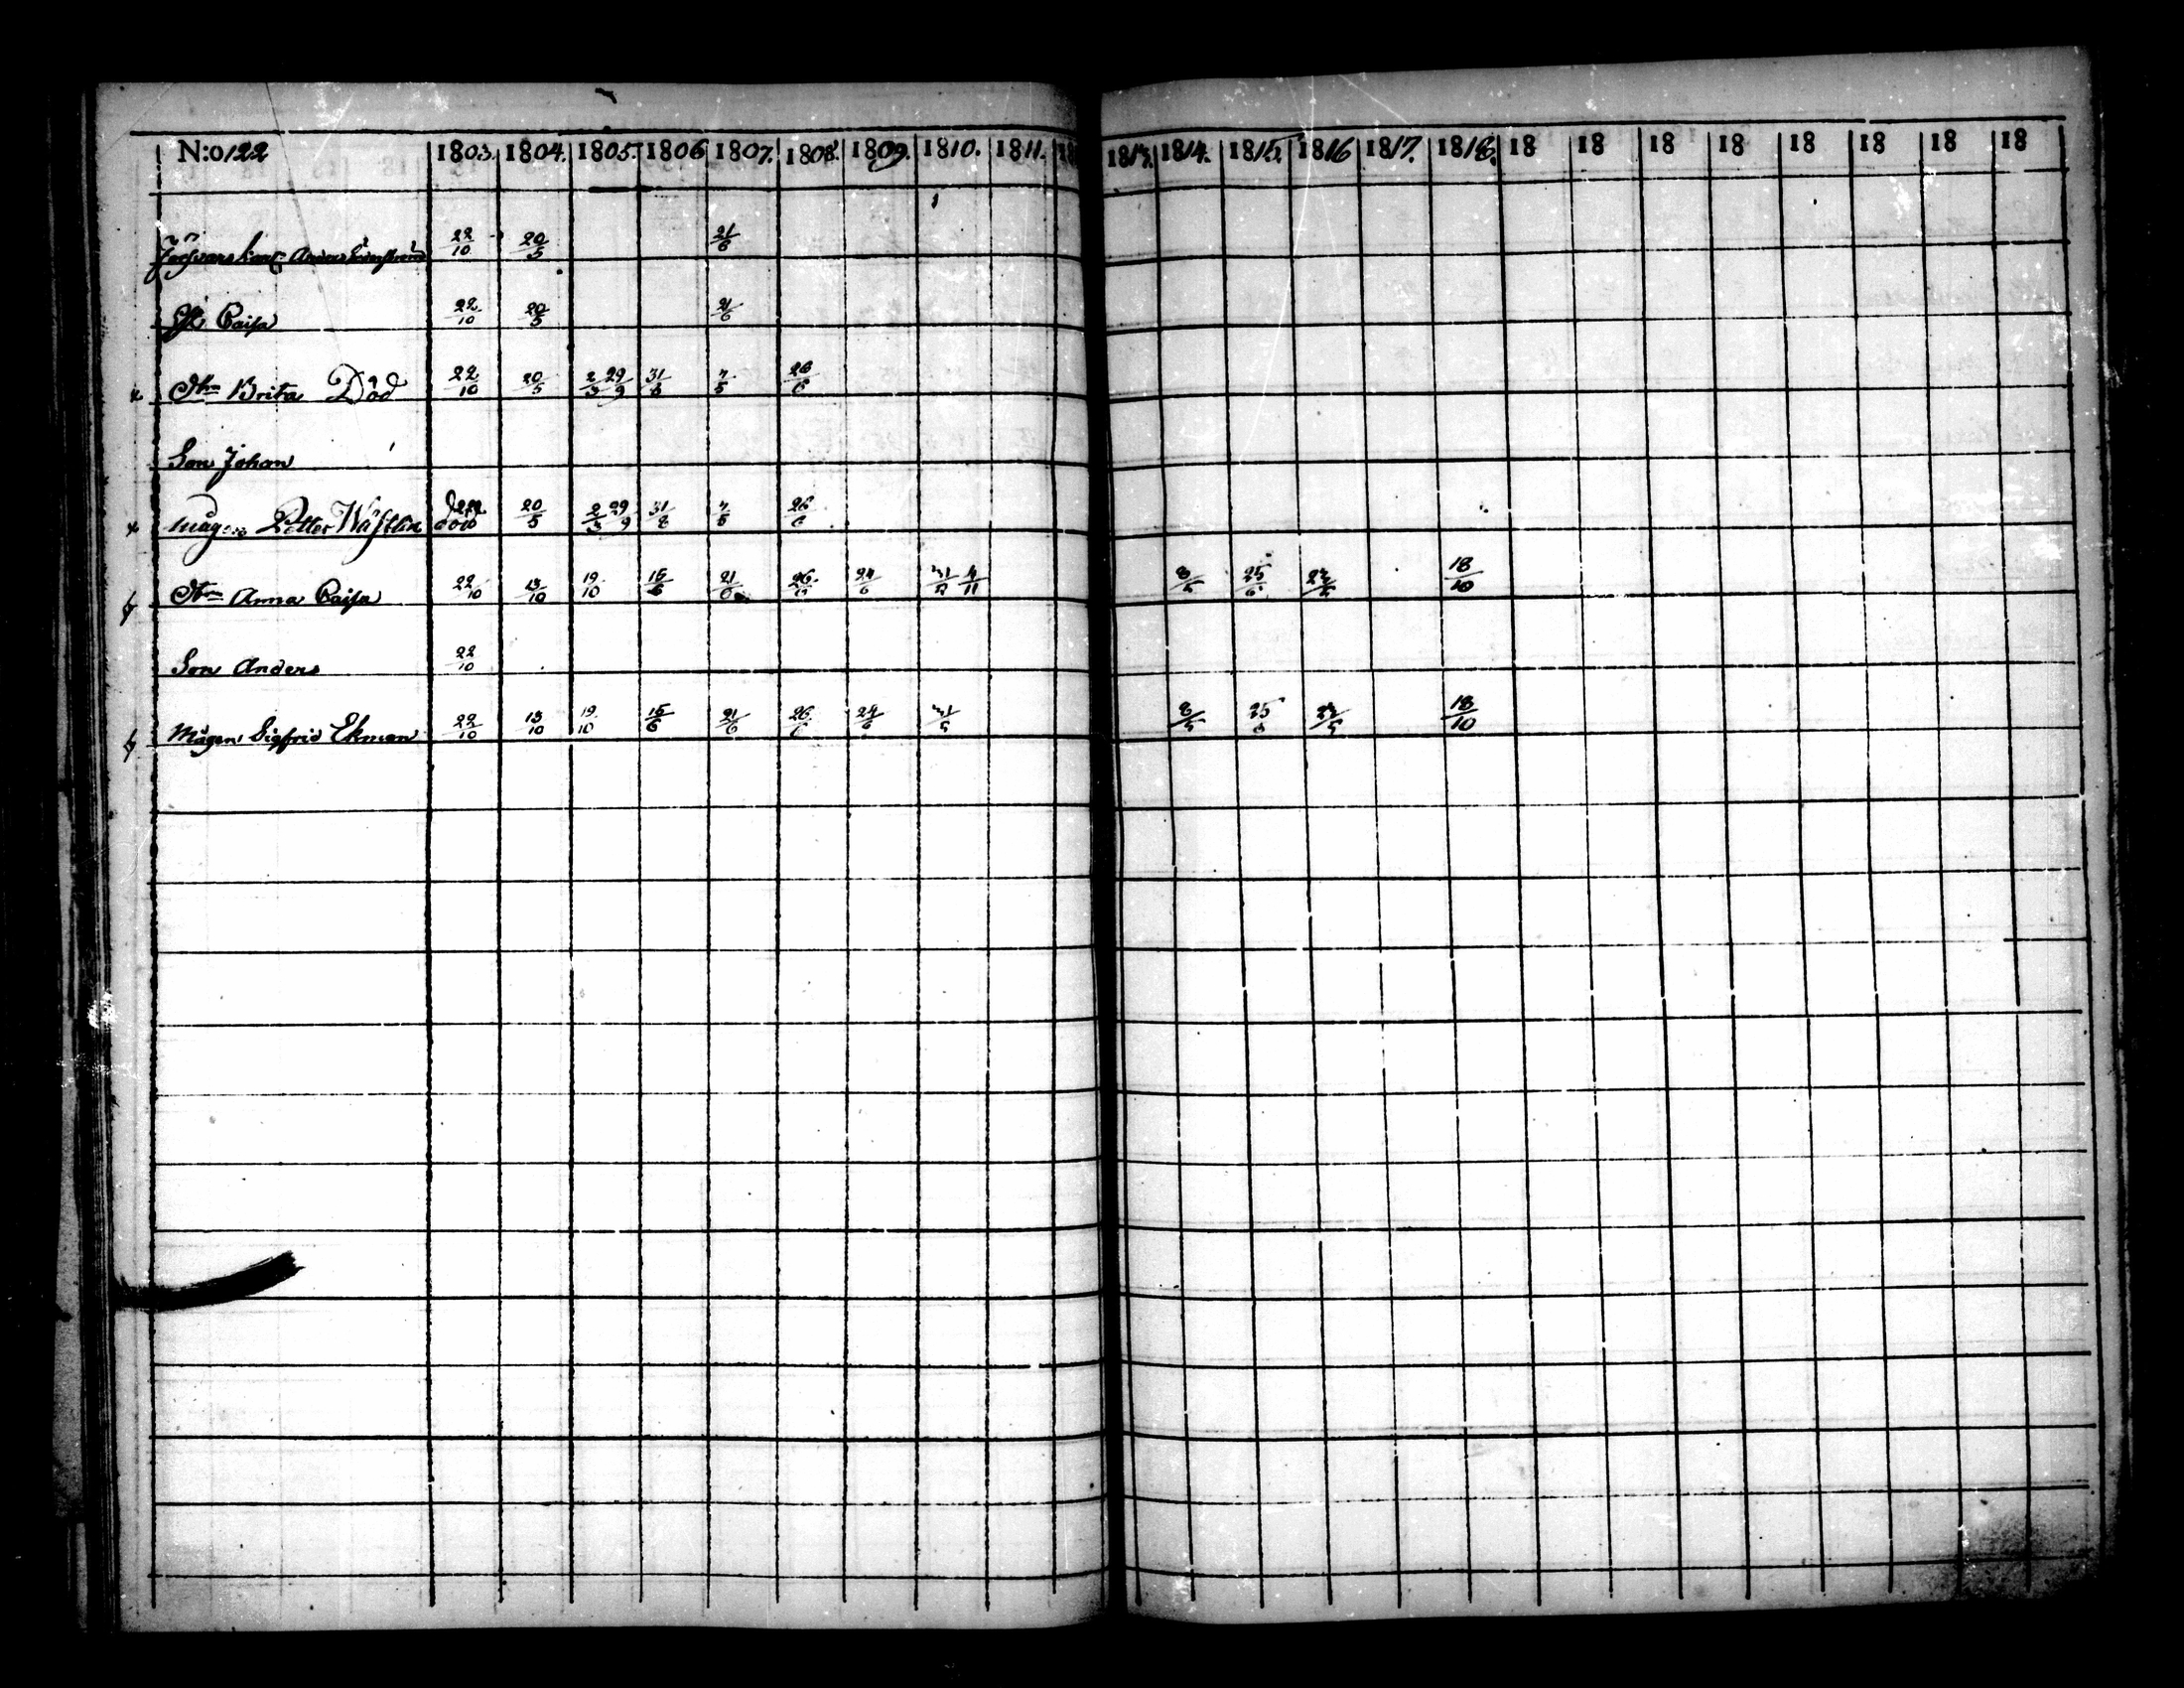 N:o 122 1803. 1804. 1805. 1806 1807. 1808. 1809. 1810. 1811. 18 1813. 1814. 1815. 1816 1817. 1818. 18 18 18 18 18 18 18 18
Anders 22/10 20/5 21/6
Caisa 22/10 20/5 21/6
Brita Död 22/10 20/5 2/3 29/9 31/8 7/5 26/6
Son Johan
mågen Petter Wästlin död 20/5 2/3 29/9 31/8 7/5 26/6
Anna Caisa 22/10 13/10 19/10 15/6 21/6 26/6 24/6 4/11 8/5 25/6 18/10
Son Anders 22/10
Mågen Sigfrid Ekman 22/10 13/10 19/10 15/6 21/6 26/6 24/6 8/5 25/6 18/10